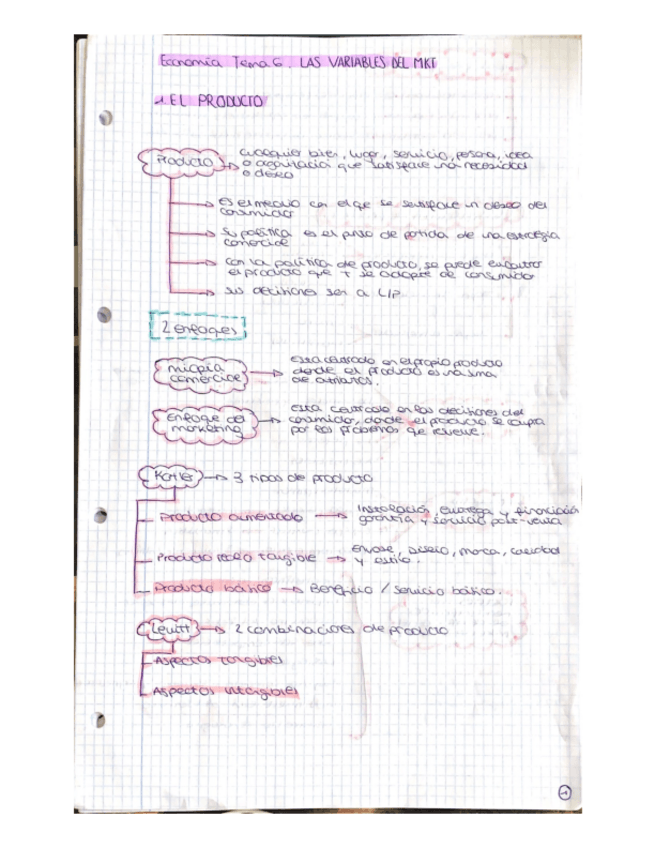 Economía Tema 6. LAS VARIABLES DEL MKT
1. EL PRODUCTO
cualquier bien, lugar, servicio, persona, idea
Producto → o organización que satisface una necesidad
o deseo
→ Es el medio con el que se satisface un deseo del
consumidor
→ Su política es el punto de partida de una estrategia
comercial
→ con la política de producto, se puede encontrar
el producto que + se adapte al consumidor
→ sus decisiones son a L/P
2 enfoques
miopía comercial → Está centrado en el propio producto
donde el producto es una suma
de atributos.
Enfoque del marketing → Está centrado en las decisiones del
consumidor, donde el producto se compra
por los problemas que resuelve.
Kotler → 3 tipos de producto
Producto aumentado → Instalación, entrega y financiación
garantía y servicio post-venta
Producto real o tangible → envase, diseño, marca, calidad
y estilo.
Producto básico → Beneficio / servicio básico.
Levitt → 2 combinaciones de producto
Aspectos tangibles
Aspectos intangibles
1